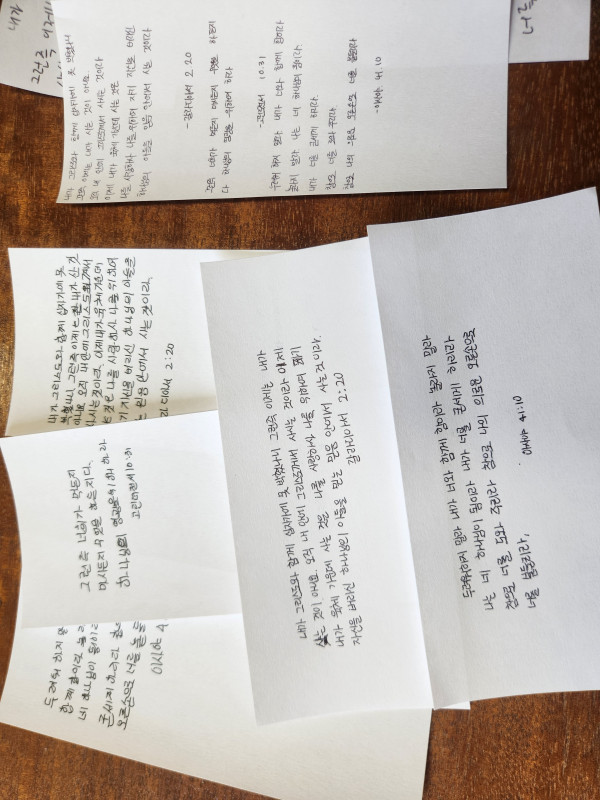 내가
그런즉
이제는
너를
내가 그리스도와 함께 십자가에 못 박혔나니
그런즉 이제는 내가 사는 것이 아니요
오직 내 안에 그리스도께서 사시는 것이라
이제 내가 육체 가운데 사는 것은
나를 사랑하사 나를 위하여 자기 자신을 버리신
하나님의 아들을 믿음 안에서 사는 것이라
- 갈라디아서 2.20
그런즉 너희가 먹든지 마시든지 무엇을 하든지
다 하나님의 영광을 위하여 하라
-고린도전서 10.31
두려워 하지 말라 내가 너와 함께 함이라
놀라지 말라 나는 네 하나님 됨이라
내가 너를 굳세게 하리라
참으로 너를 도와 주리라
참으로 나의 의로운 오른손으로 너를 붙들리라
-이사야 41.10
내가 그리스도와 함께 십자가에 못
박혔나니 그런즉 이제는 내가 산 것
아니요 오직 내 안에 그리스도께서
사시는 것이라. 이제 내가 육체 가운데
는 것은 나를 사랑하사 나를 위하여
기 자신을 버리신 하나님의 아들을
는 믿음 안에서 사는 것이라.
라디아서 2:20
그런즉 너희가 먹든지
마시든지 무엇을 하든지 다
하나님의 영광을 위하여 하라
고린도전서 10:31
두려워 하지 말
함께 함이라 놀라
네 하나님이 됨이라
굳세게 하리라 참
오른손으로 너를 붙들
이사야 4
내가 그리스도와 함께 십자가에 못 박혔나니 그런즉 이제는 내가
사는 것이 아니요. 오직 내 안에 그리스도께서 사시는 것이라 이제
내가 육체 가운데 사는 것은 나를 사랑하사 나를 위하여 자기
자신을 버리신 하나님의 아들을 믿는 믿음 안에서 사는 것이라.
갈라디아서 2:20
두려워하지 말라 내가 너와 함께 함이라 놀라지 말라
나는 네 하나님이 됨이라 내가 너를 굳세게 하리라
참으로 너를 도와 주리라 참으로 나의 의로운 오른손으로
너를 붙들리라.
이사야 41:10